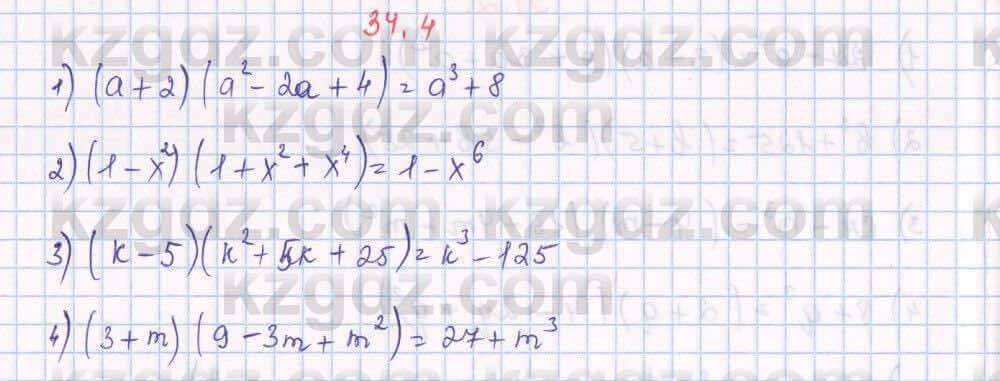 34.4
kzgdz.com kzgdz.com
1) (a + 2) (a² - 2a + 4) = a³ + 8
kzgdz.com
2) (1 - x²) (1 + x² + x⁴) = 1 - x⁶
kzgdz.com kzgdz.com
3) (k - 5) (k² + 5k + 25) = k³ - 125
kzgdz.com
4) (3 + m) (9 - 3m + m²) = 27 + m³